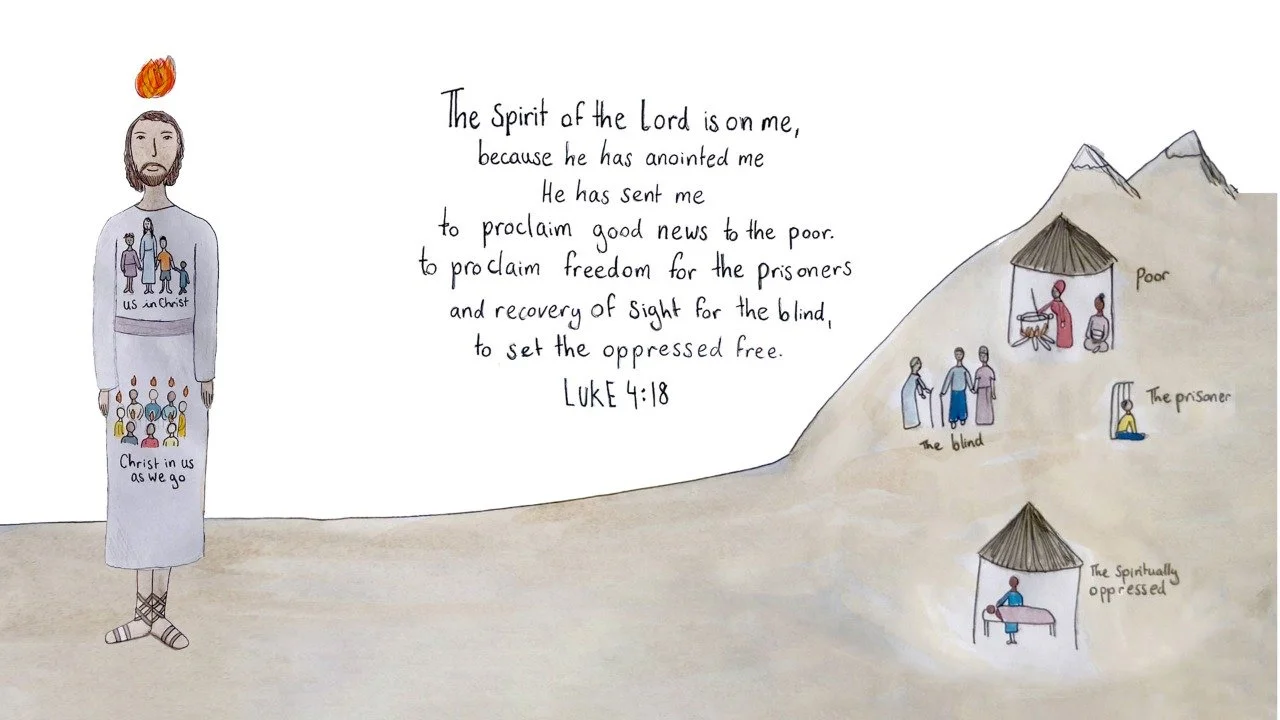 The Spirit of the Lord is on me,
because he has anointed me
He has sent me
to proclaim good news to the poor.
to proclaim freedom for the prisoners
and recovery of sight for the blind,
to set the oppressed free.
LUKE 4:18
us in Christ
Christ in us
as we go
Poor
The prisoner
The blind
The Spiritually
oppressed